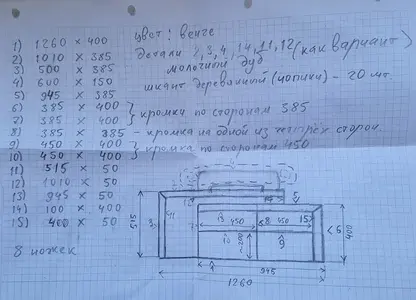 1) 1260 × 400
2) 1010 × 385
3) 500 × 385
4) 600 × 150
5) 945 × 385
6) 385 × 400 } кромка по сторонам 385
7) 385 × 400
8) 385 × 385 - кромка на одной из четырёх сторон.
9) 450 × 400 } кромка по сторонам 450
10) 450 × 400
11) 515 × 50
12) 1010 × 50
13) 945 × 50
14) 100 × 400
15) 400 × 50
8 ножек
цвет: венге
детали 2, 3, 4, 14, 11, 12 (как вариант)
молочный дуб
шкант деревянный (чопики) - 20 шт.
515
3
11
14
5
13
450
8
450
15
10
9
6
400
1
945
1260